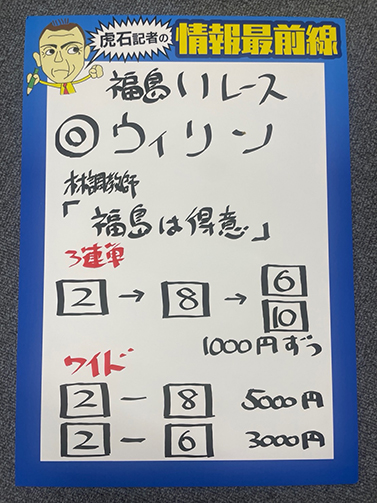 虎石記者の情報最前線
福島11レース
◎ウィリン
林調教師
「福島は得意」
3連単
2→8→6
10
1000円ずつ
ワイド
2-8 5000円
2-6 3000円